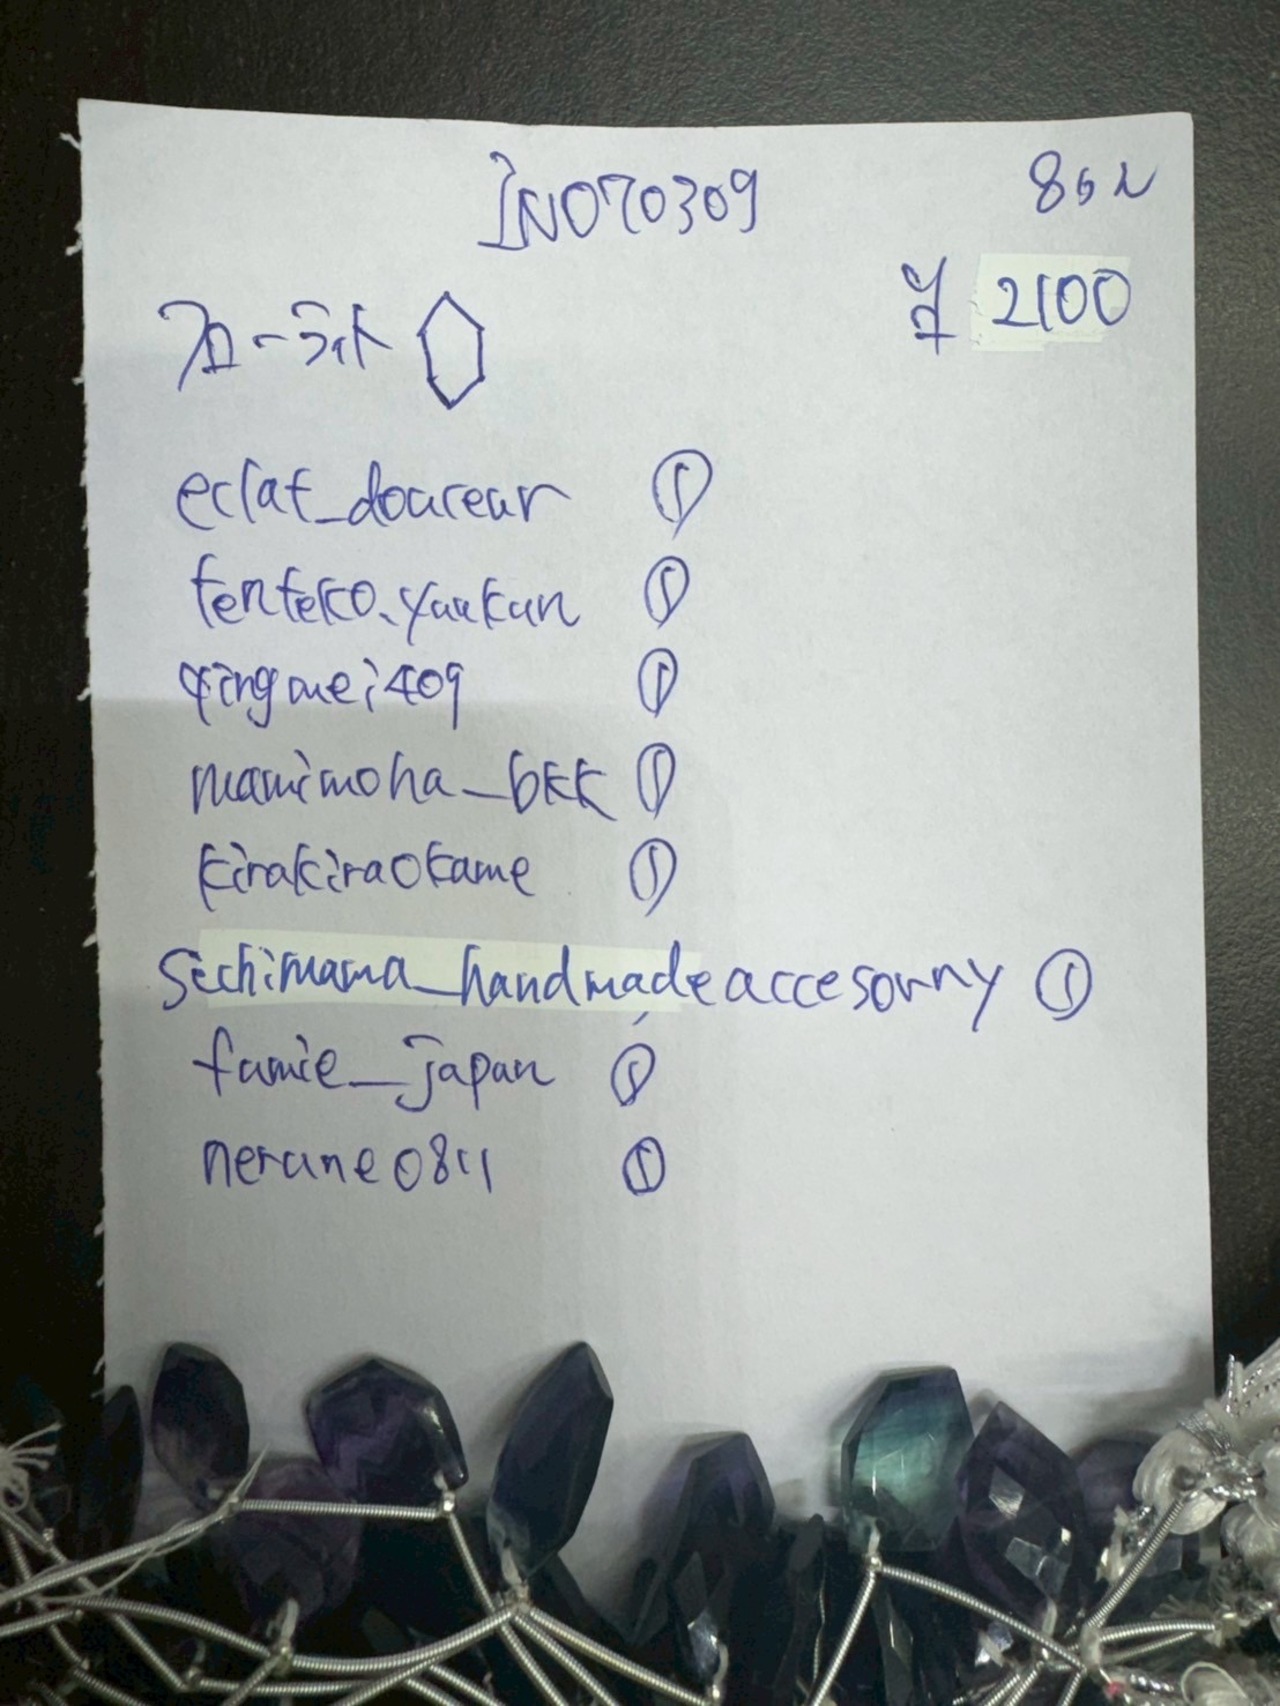 IN070309
862
¥ 2100
フローライト
eclat_douceur ①
tenteko.yuukun ①
qingmei409 ①
mamimoha_bkk ①
kirakiraokame ①
sechimama_handmadeaccesorry ①
fumie_japan ①
nerune0811 ①